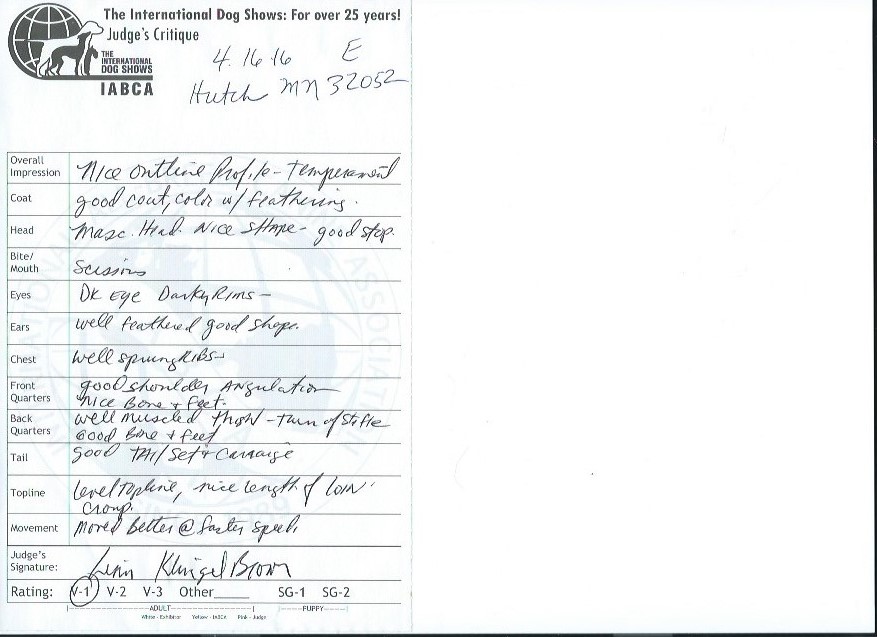 The International Dog Shows: For over 25 years!
Judge's Critique
THE
INTERNATIONAL
DOG SHOWS
IABCA
4.16.16 E
Hutch MN 32052
Overall Impression Nice outline Profile - Temperament
Coat good coat, color w/ feathering.
Head Masc. Head. Nice shape - good stop.
Bite/ Mouth Scissors
Eyes Dk Eye Dark Rims -
Ears well feathered good shape.
Chest well sprung Ribs
Front Quarters good shoulder Angulation
nice Bone + feet.
Back Quarters well muscled thigh - Turn of Stifle
Good Bone + feet
Tail good Tail Set + Carraige
Topline Level Topline, nice length of Loin
Croup.
Movement Moved better @ faster speed.
Judge's Signature: Klingel Brown
Rating: V-1 V-2 V-3 Other_____ SG-1 SG-2
ADULT PUPPY
White - Exhibitor Yellow - IABCA Pink - Judge